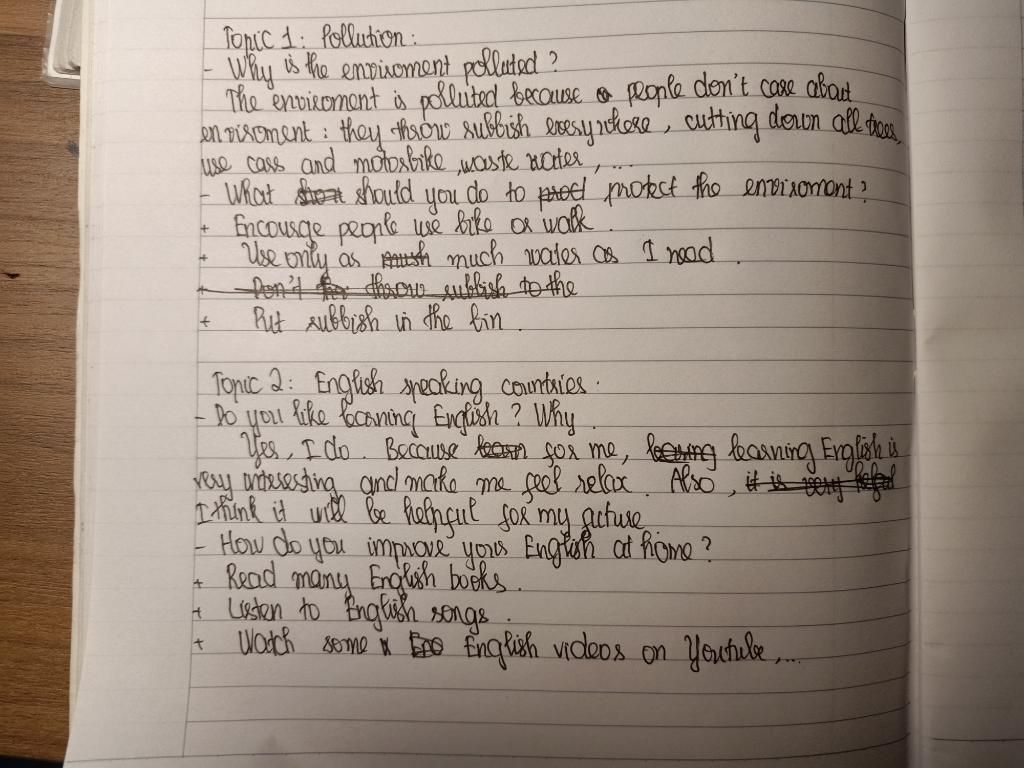 Topic 1: Pollution:
- Why is the enviroment polluted?
The enviroment is polluted because people don't care about
enviroment: they throw rubbish everywhere, cutting down all trees,
use cars and motorbike, waste water, ...
- What should you do to protect the enviroment?
+ Encourge people use bike or walk.
+ Use only as much water as I need.
+ Don't throw rubbish to the
+ Put rubbish in the bin.
Topic 2: English speaking countries:
- Do you like learning English? Why
Yes, I do. Because for me, learning English is
very interesting and make me feel relax. Also,
I think it will be helpful for my
- How do you improve your English at home?
+ Read many English books.
+ Listen to English songs.
+ Watch some English videos on Youtube,...